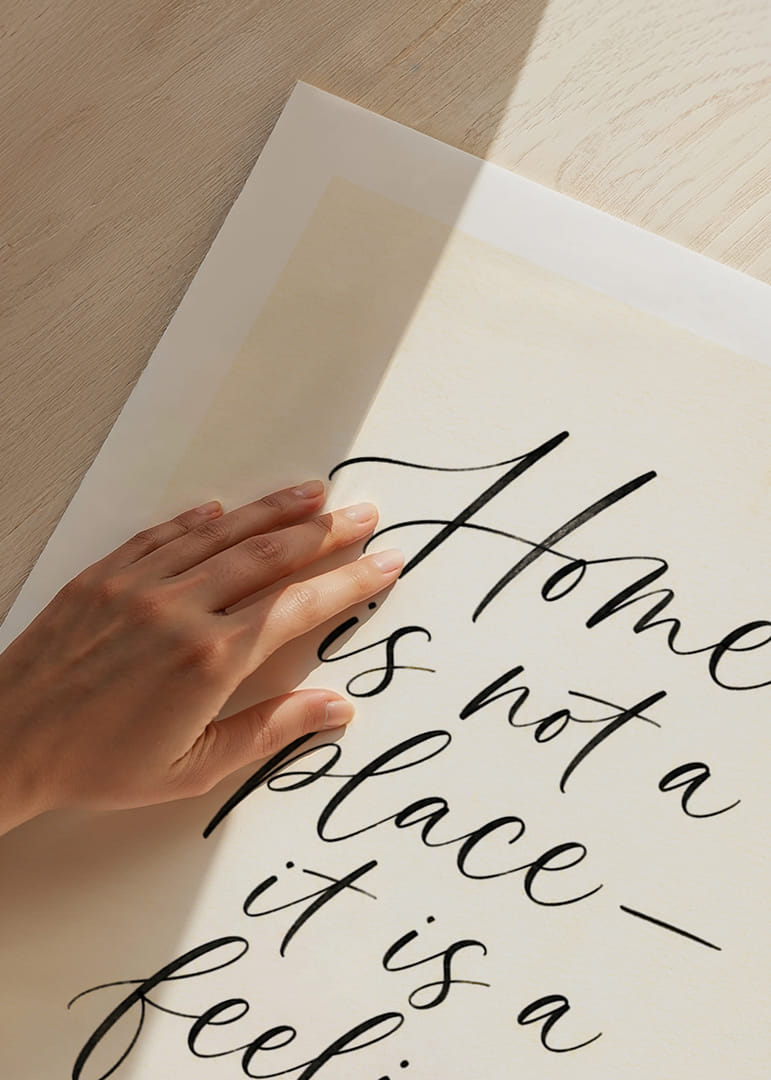 Home
is not a
place —
it is a
feeli